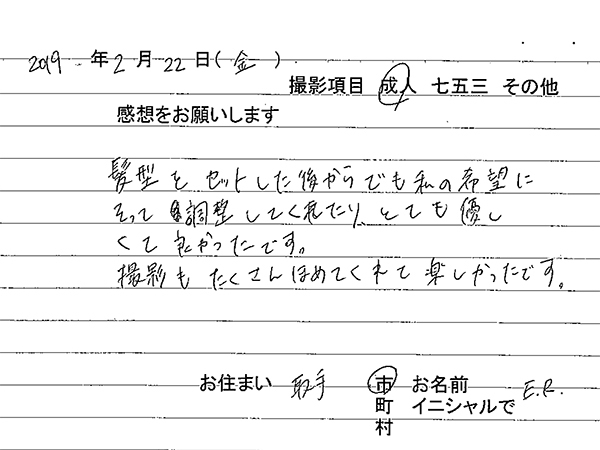 2019 年 2 月 22 日(金)
撮影項目 成人 七五三 その他
感想をお願いします
髪型をセットした後からでも私の希望に
そって調整してくれたり、とても優し
くて良かったです。
撮影もたくさんほめてくれて楽しかったです。
お住まい 取手 市 お名前 E.R.
町 イニシャルで
村